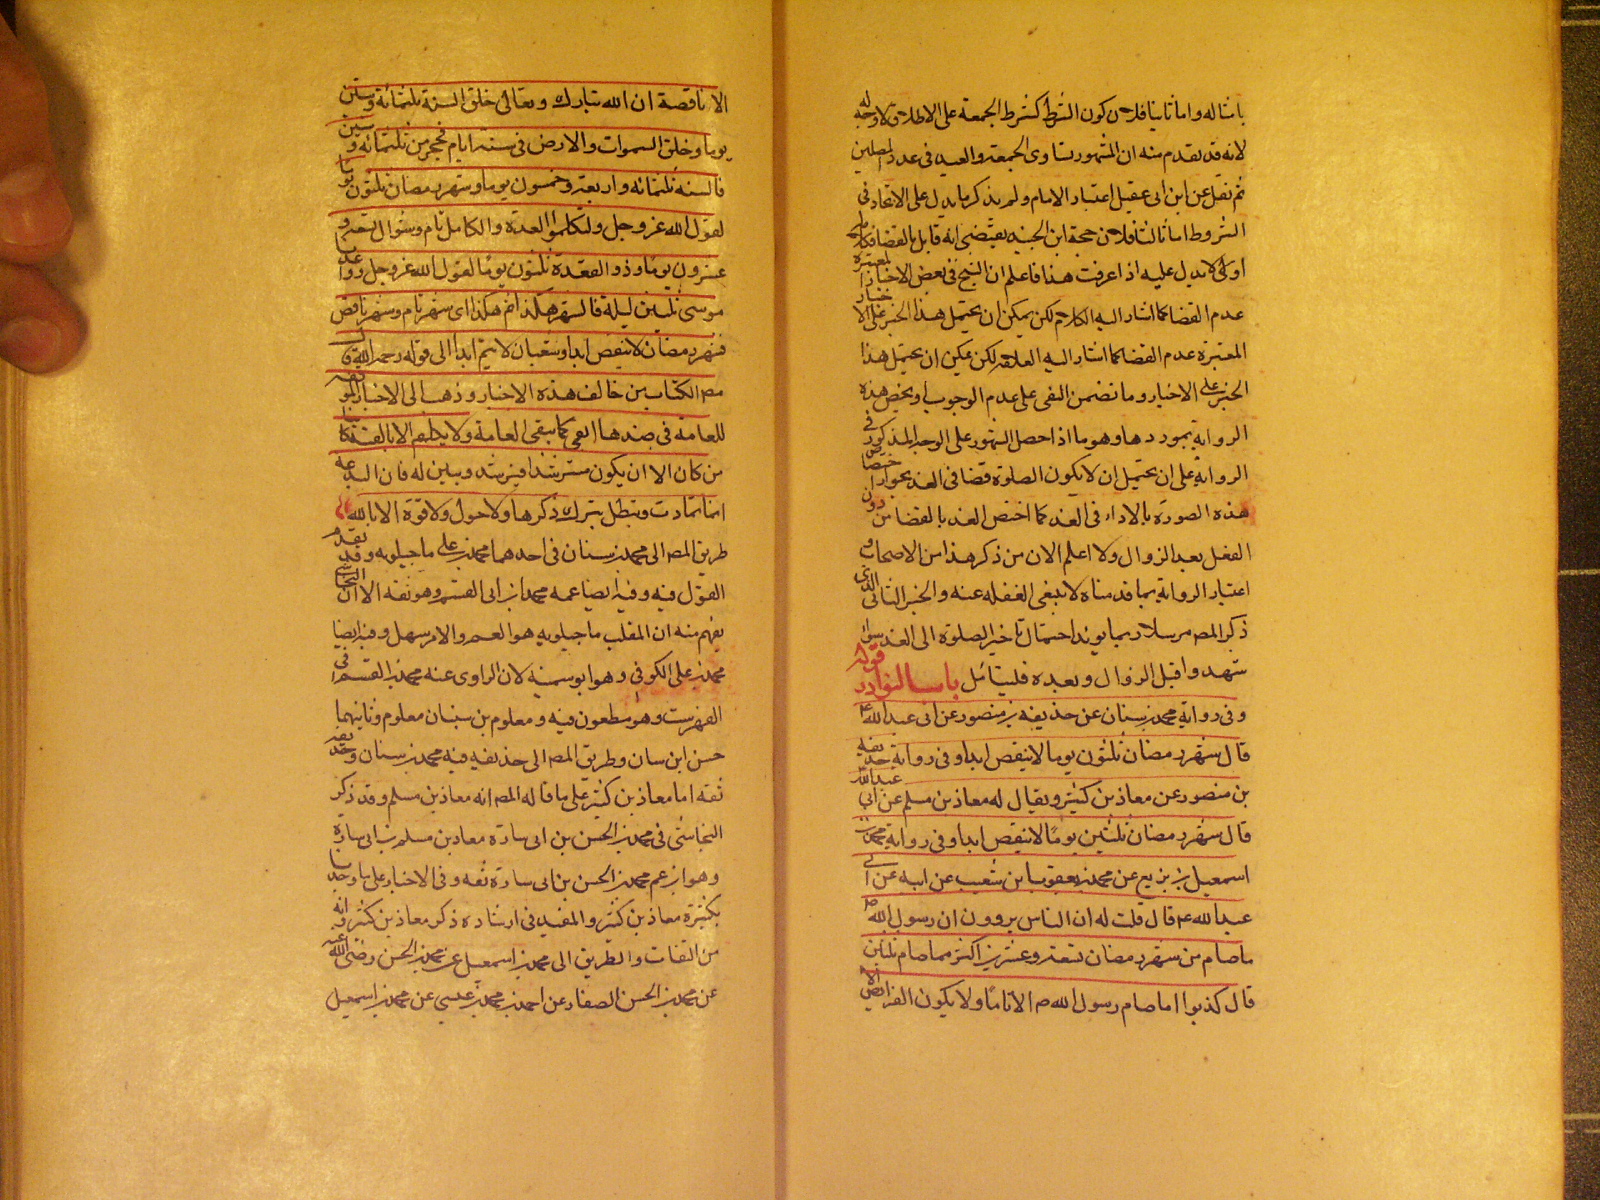 بامثاله واما ثانيا فلان كون الشرط كشرط الجمعة على الاطلاق لا وجه له
لانه قد تقدم منه ان المشهور تساوى الجمعة والعيد فى عدد المصلين
ثم نقل عن ابن ابى عقيل اعتبار الامام ولم يذكر ما يدل على الاتحاد فى
الشروط اما ثالثا فلان حجة ابن الجنيد يقتضى انه قابل بالقضا فكان
اولى لا يدل عليه اذا عرفت هذا فاعلم ان الشيخ فى بعض الاخبار
عدم القضا كما اشار اليه لكن يمكن ان يحتمل هذا الخبر على الا
المعتبرة عدم القضا كما اشار اليه العلامة لكن يمكن ان يحتمل هذا
الخبر على الاخبار وما تضمن النفى على عدم الوجوب او يخص هذه
الرواية بموردها وهو ما اذا حصل الشهور على الوجه المذكور فى
الرواية على ان يحتمل ان لا يكون الصلوة قضا فى الغد بجواز اختصاص
هذه الصورة بالاداء فى الغد كما اختص الغد بالقضا من دون
الفعل بعد الزوال ولا اعلم الان من ذكر هذا من الاصحاب و
اعتبار الرواية بما قدمناه لا ينبغى الغفلة عنه والخبر الثانى الذى
ذكر المص مرسلا ربما يويد احتمال تاخير الصلوة الى الغد سواء
شهد واقبل الزوال وبعده فليتامل باب النوادر قوله
وفى رواية محمد بن سنان عن حذيفة بن منصور عن ابى عبد الله ع
قال شهر رمضان ثلثون يوما لا ينقص ابدا وفى رواية حذيفه
بن منصور عن معاذ بن كثير ويقال له معاذ بن مسلم عن ابى عبد الله
قال شهر رمضان ثلثين يومًا لا ينقص ابدا وفى رواية محمد بن
اسمعيل بن بزيع عن محمد بن يعقوب بن شعيب عن ابيه عن ابى
عبد الله ع قال قلت له ان الناس يروون ان رسول الله ص
ما صام من شهر رمضان تسعة وعشرين اكثر مما صام ثلثين
قال كذبوا ما صام رسول الله ص الا تامًا ولا يكون الفرائض الا
الا ناقصة ان الله تبارك وتعالى خلق السنة ثلثمائة وستين
يوما وخلق السموات والارض فى ستة ايام فحجر من ثلثمائه وستين
فالسنه ثلثمائه واربعة وخمسون يوما وشهر رمضان ثلثون يوما
لقول الله عز وجل ولتكلموا العدة والكامل تام وشوال تسعة و
عشرون يومًا وذو القعدة ثلثون يومًا لقول الله عز وجل وواعدنا
موسى ثلثين ليلة فالشهر هكذا ثم هكذا اى شهر تام وشهر ناقص
فشهر رمضان لا ينقص ابدا وشعبان لا يتم ابدا الى قوله رحمه الله قال
مص الكتاب من خالف هذه الاخبار وذهب الى الاخبار
للعامة فى ضدها اتقى كما يتقى العامة ولا يكلم الا بالتقية كائنا
من كان الا ان يكون مسترشدا فيرشد ويبين له فان البدعة
انما تماث وتبطل بترك ذكرها ولا حول ولا قوة الا بالله
طريق المص الى محمد بن سنان فى احدهما محمد بن على ماجيلويه وقد تقدم
القول فيه وفيه ايضا عمه محمد بن ابى القسم وهو ثقه الا ان النجاشى
يفهم منه ان الملقب ماجيلويه هو العم والامر سهل وفيه ايضا
محمد بن على الكوفى وهو ابو سمينة لان الراوى عنه محمد بن القسم فى
الفهرست وهو مطعون فيه ومعلوم بن سنان معلوم وثانيهما
حسن ابن سان وطريق المص الى حذيفه فيه محمد بن سنان وحذيفه
ثقه اما معاذ بن كثير على ما قاله المص انه معاذ بن مسلم وقد ذكر
النجاشى فى محمد بن الحسن بن ابى سارة معاذ بن مسلم بن ابى سارة
وهو ابن عم محمد بن الحسن بن ابى سارة ثقه وفى الاخبار على ما وجدنا
بكثرة معاذ بن كثير والمفيد فى ارشاده ذكر معاذ بن كثير وانه
من الثقات والطريق الى محمد بن اسمعيل عن محمد بن الحسن رضى الله عنه
عن محمد بن الحسن الصفار عن احمد بن محمد بن عيسى عن محمد بن اسمعيل